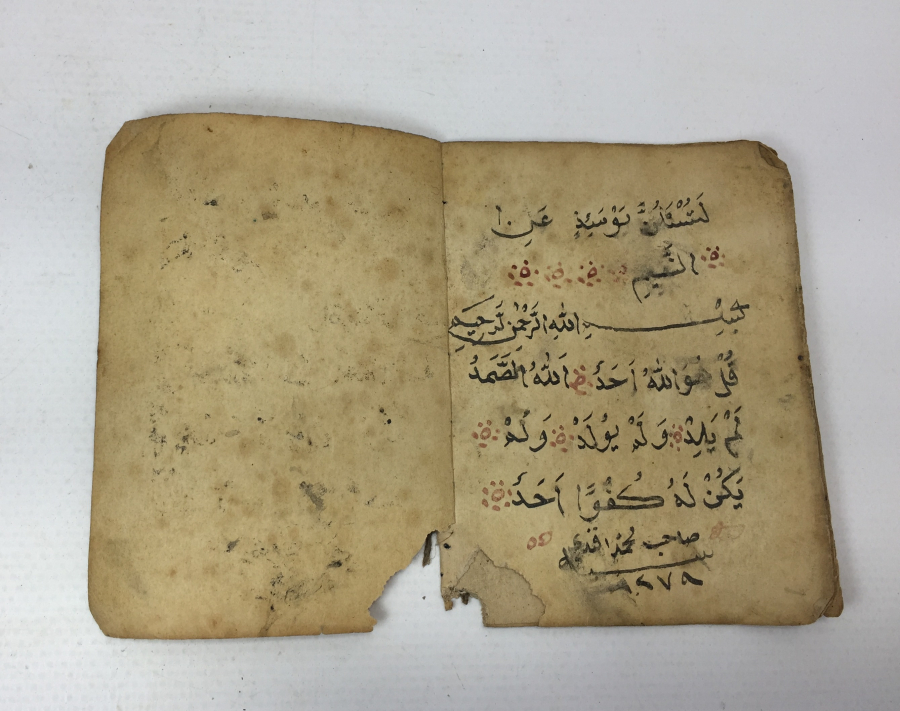 لَتُسْئَلُنَّ يَوْمَئِذٍ عَنِ ا
لنَّعِيمِ
بِسْمِ اللهِ الرَّحْمٰنِ الرَّحِيمِ
قُلْ هُوَ اللهُ اَحَدٌ اَللهُ الصَّمَدُ
لَمْ يَلِدْ وَلَمْ يُولَدْ وَلَمْ
يَكُنْ لَهُ كُفُوًا اَحَدٌ
صاحب محمد افندى
سنه
١٢٧٨